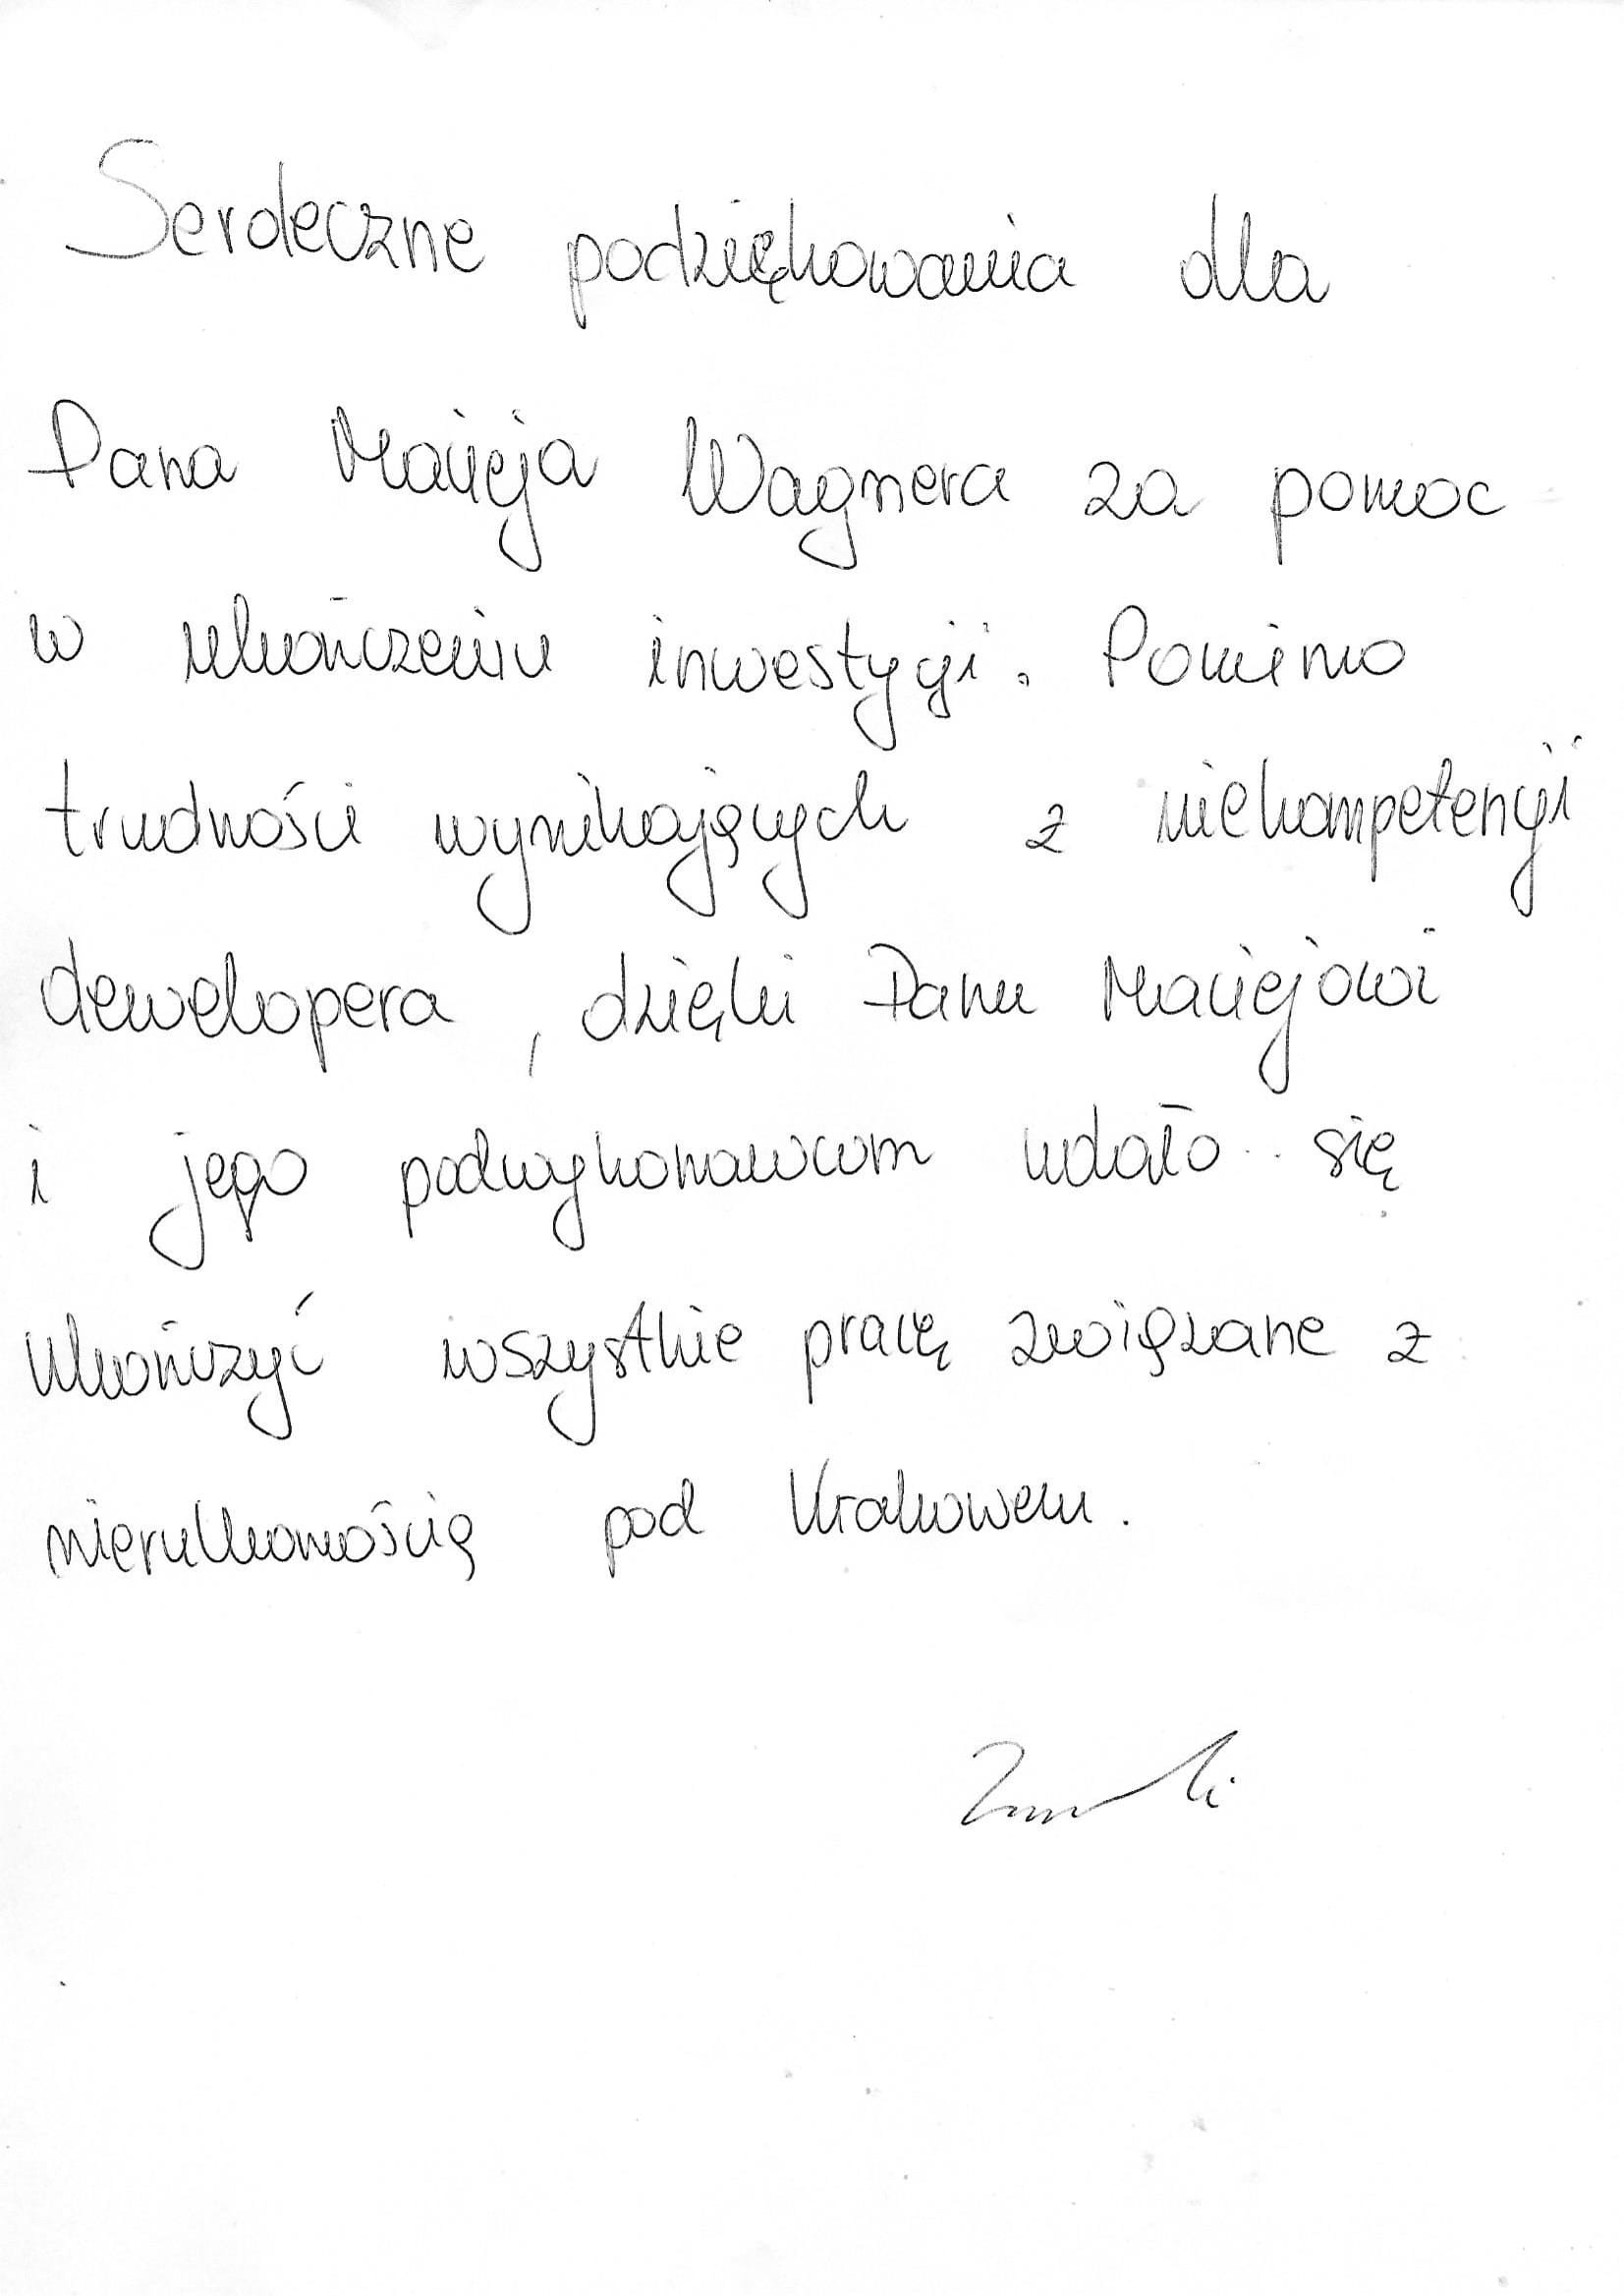 Serdeczne podziękowania dla
Pana Macieja Wagnera za pomoc
w ukończeniu inwestycji. Pomimo
trudności wynikających z niekompetencji
dewelopera, dzięki Panu Maciejowi
i jego podwykonawcom udało się
ukończyć wszystkie pracę związane z
nieruchomością pod Krakowem.